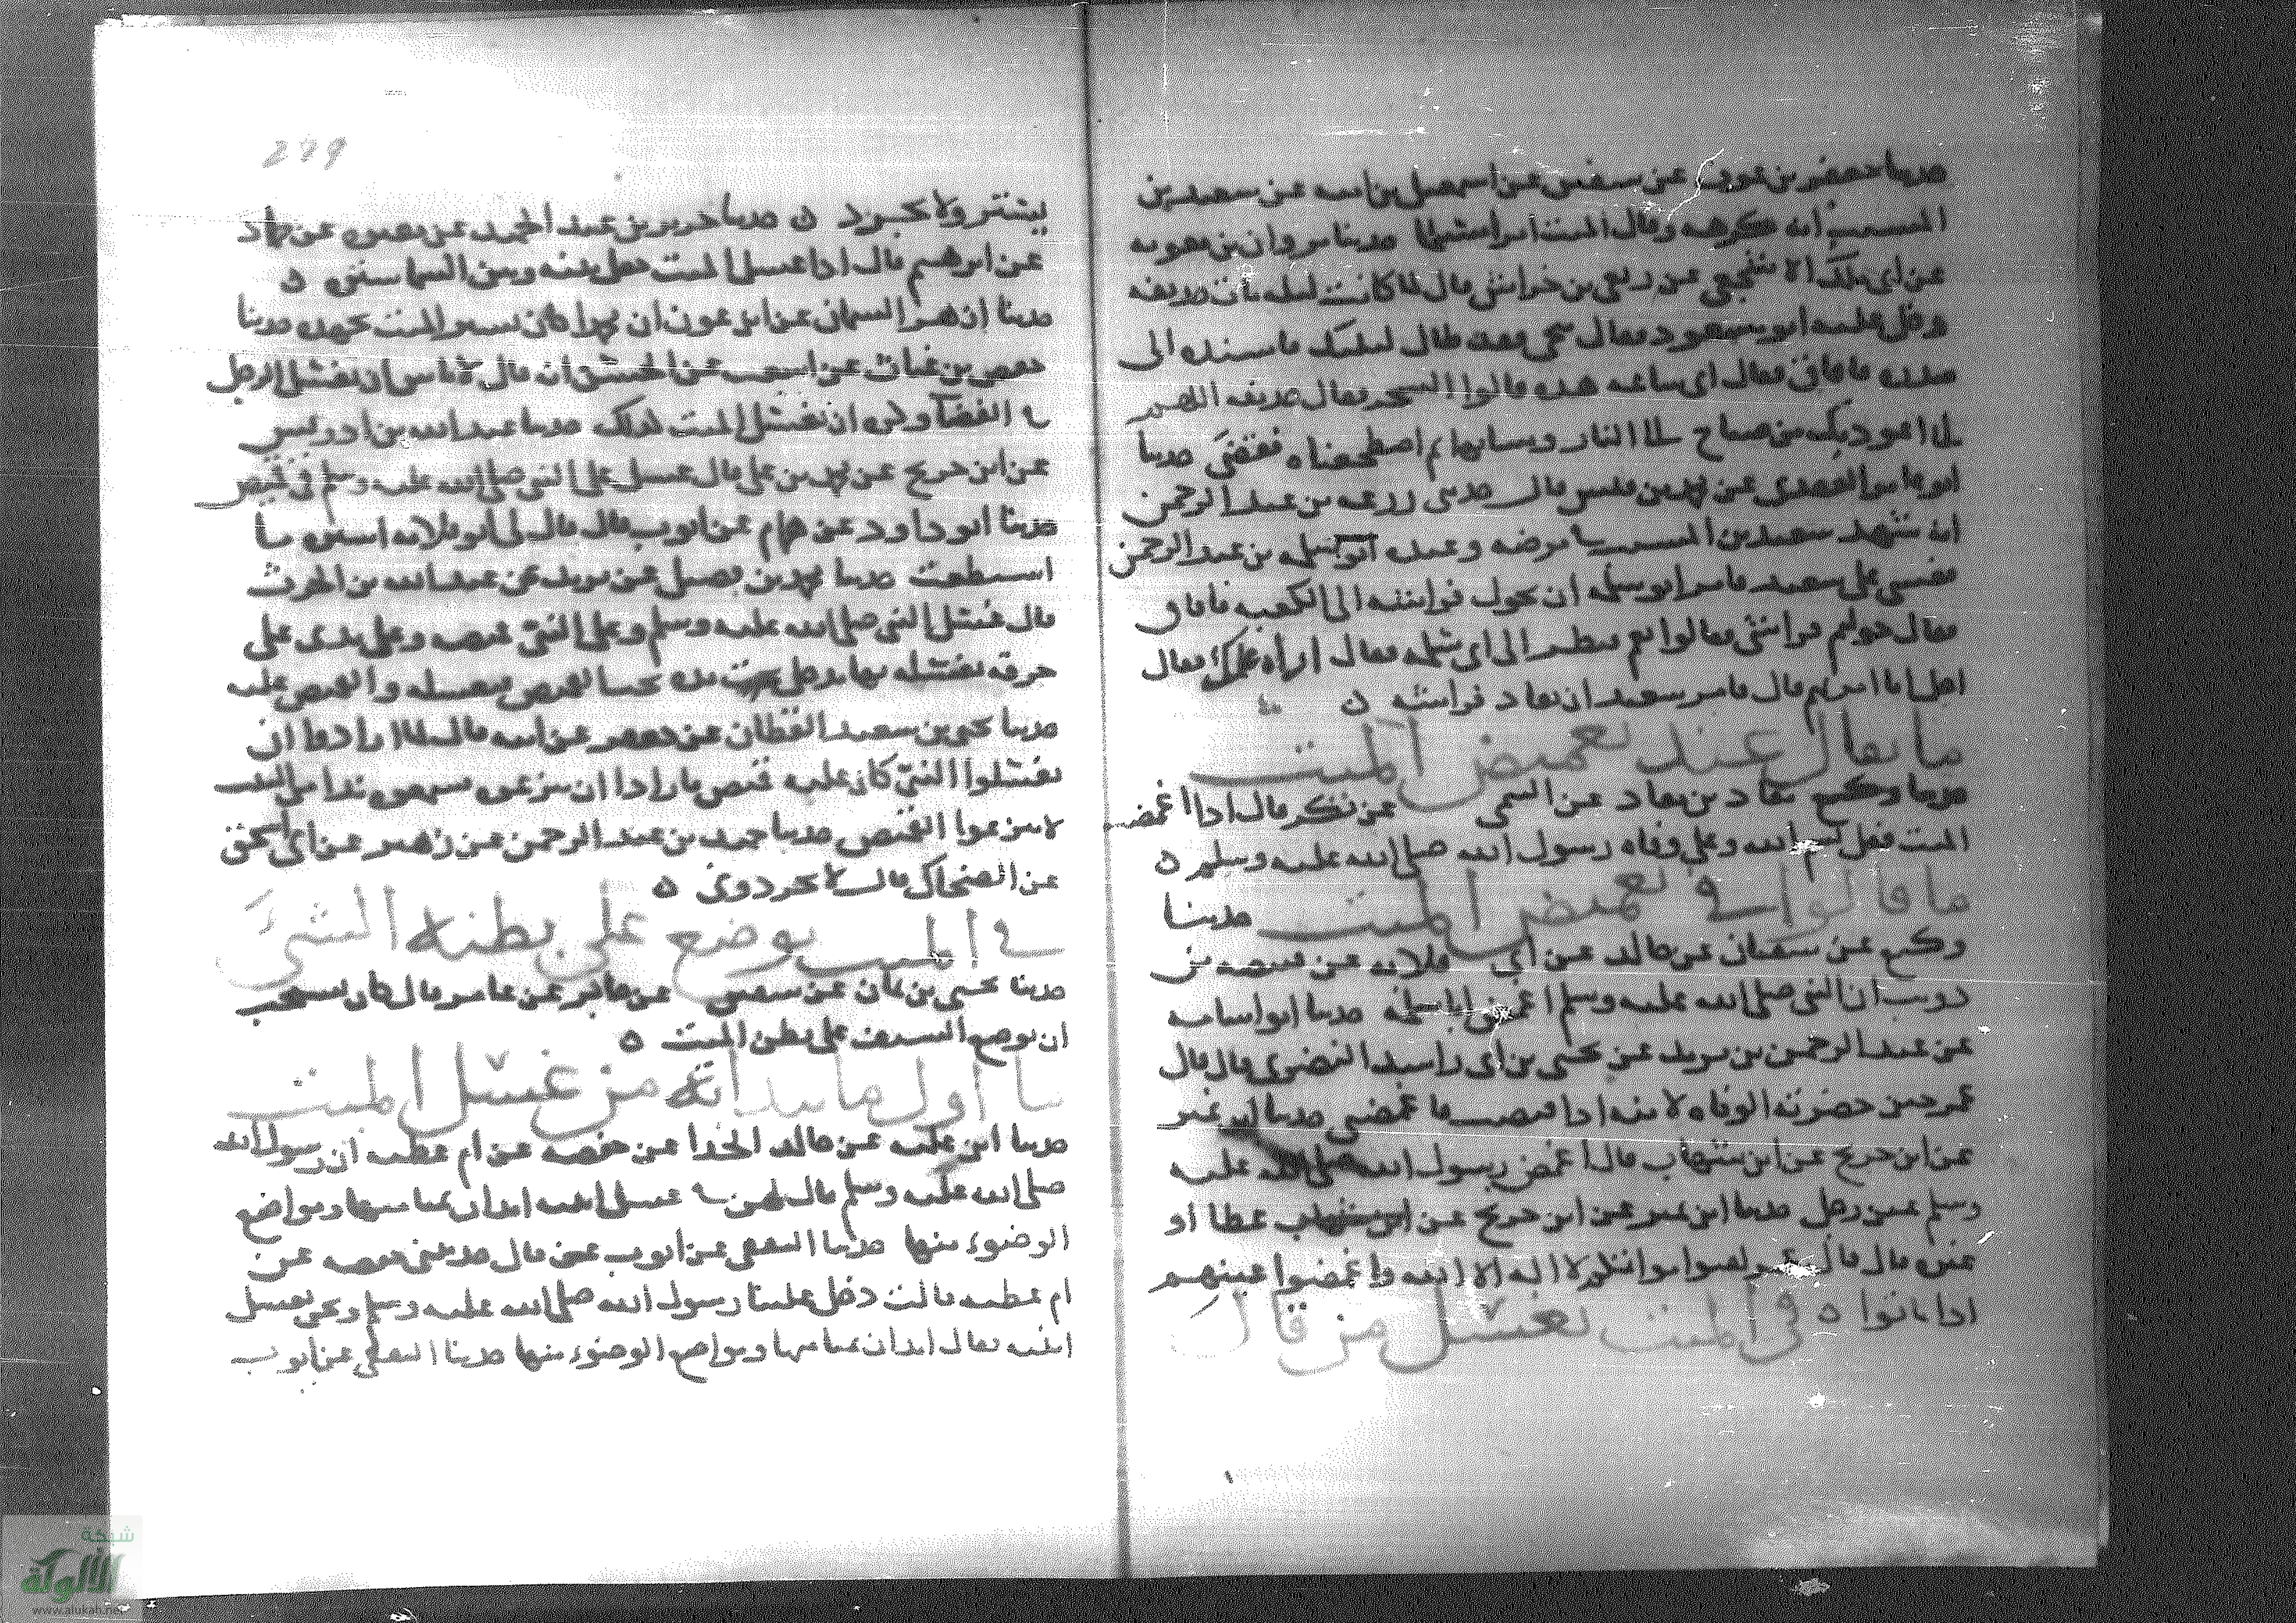 حدثنا جعفر بن عون عن سفين عن اسمعيل بن اميه عن سعيد بن
المسيب انه كرهه وقال اليست امرا مسلما حدثنا مروان بن معويه
عن ابي ملك الاشجعي عن ربعي بن خراش قال لما كانت ليله مات حذيفه
دخل عليه ابو مسعود فقال تنحى فقد طال ليلك فاسنده الى
صدره فافاق فقال اي ساعه هذه قالوا السحر فقال حذيفه اللهم
اني اعوذ بك من صباح الى النار ومسا بها ثم اضجعناه فقضى حدثنا
ابو عامر العقدي عن محمد بن قيس قال حدثني زرعه بن عبد الرحمن
انه شهد سعيد بن المسيب في مرضه وعنده ابو سلمه بن عبد الرحمن
فغشي على سعيد فامر ابو سلمه ان يحول فراشه الى الكعبه فافاق
فقال حولتم فراشي فقالوا نعم فنظر الى ابي سلمه فقال اراه عملك فقال
اجل انا امرتهم قال فامر سعيد ان يعاد فراشه
ما يقال عند تغميض الميت
حدثنا وكيع معاذ بن معاذ عن التيمي عن بكر قال اذا اغمضت
الميت فقل بسم الله وعلى وفاه رسول الله صلى الله عليه وسلم
ما قالوا في تغميض الميت حدثنا
وكيع عن سفيان عن خالد عن ابي قلابه عن قبيصه بن
ذويب ان النبي صلى الله عليه وسلم اغمض ابا سلمه حدثنا ابو اسامه
عن عبد الرحمن بن يزيد عن يحيى بن ابي راشد النضري قال قال
عمر حين حضرته الوفاه لابنه اذا قبضت فاغمضني حدثنا ابن نمير
عن ابن جريج عن ابن شهاب قال اغمض رسول الله صلى الله عليه
وسلم عين رجل حدثنا ابن نمير عن ابن جريج عن ابن شهاب عطا او
عن قال قال عمر لقنوا موتاكم لا اله الا الله واغمضوا اعينهم
اذا ماتوا في الميت يغسل من قال
يستر ولا يجرد حدثنا جرير بن عبد الحميد عن مغيره عن حماد
عن ابرهيم قال اذا غسل الميت جعل بينه وبين السما ستر
حدثنا ازهر السمان عن ابن عون ان محمدا كان يستر الميت بجهده حدثنا
حفص بن غياث عن اشعث عن الحسن انه قال لا باس ان يغتسل الرجل
في الفضا وكره ان يغسل الميت كذلك حدثنا عبد الله بن ادريس
عن ابن جريج عن محمد بن علي قال غسل علي النبي صلى الله عليه وسلم في قميص
حدثنا ابو داود عن همام عن ايوب قال قال لي ابو قلابه استره ما
استطعت حدثنا محمد بن فضيل عن يزيد عن عبد الله بن الحرث
قال غسل النبي صلى الله عليه وسلم وعلى النبي قميصه وعلى يدي علي
خرقه يغسله بها يدخل يده تحت القميص فيغسله والقميص عليه
حدثنا يحيى بن سعيد القطان عن جعفر عن ابيه قال لما ارادوا ان
يغسلوا النبي كان عليه قميص فارادوا ان ينزعوه فسمعوا ندا من البيت
لا تنزعوا القميص حدثنا حميد بن عبد الرحمن عن زهير عن ابي اسحق
عن الضحاك قال لا تجردوني
في الميت يوضع على بطنه الشيء
حدثنا يحيى بن يمان عن سفين عن جابر عن عامر قال كان يستحب
ان يوضع السيف على بطن الميت
ما اول ما يبدا به من غسل الميت
حدثنا ابن عليه عن خالد الحذا عن حفصه عن ام عطيه ان رسول الله
صلى الله عليه وسلم قال لهن في غسل ابنته ابدان بميامنها ومواضع
الوضوء منها حدثنا الثقفي عن ايوب عن قال حدثتني حفصه عن
ام عطيه قالت دخل علينا رسول الله صلى الله عليه وسلم ونحن نغسل
ابنته فقال ابدان بميامنها ومواضع الوضوء منها حدثنا الثقفي عن ايوب
299
شبكة
الألوكة
www.alukah.net